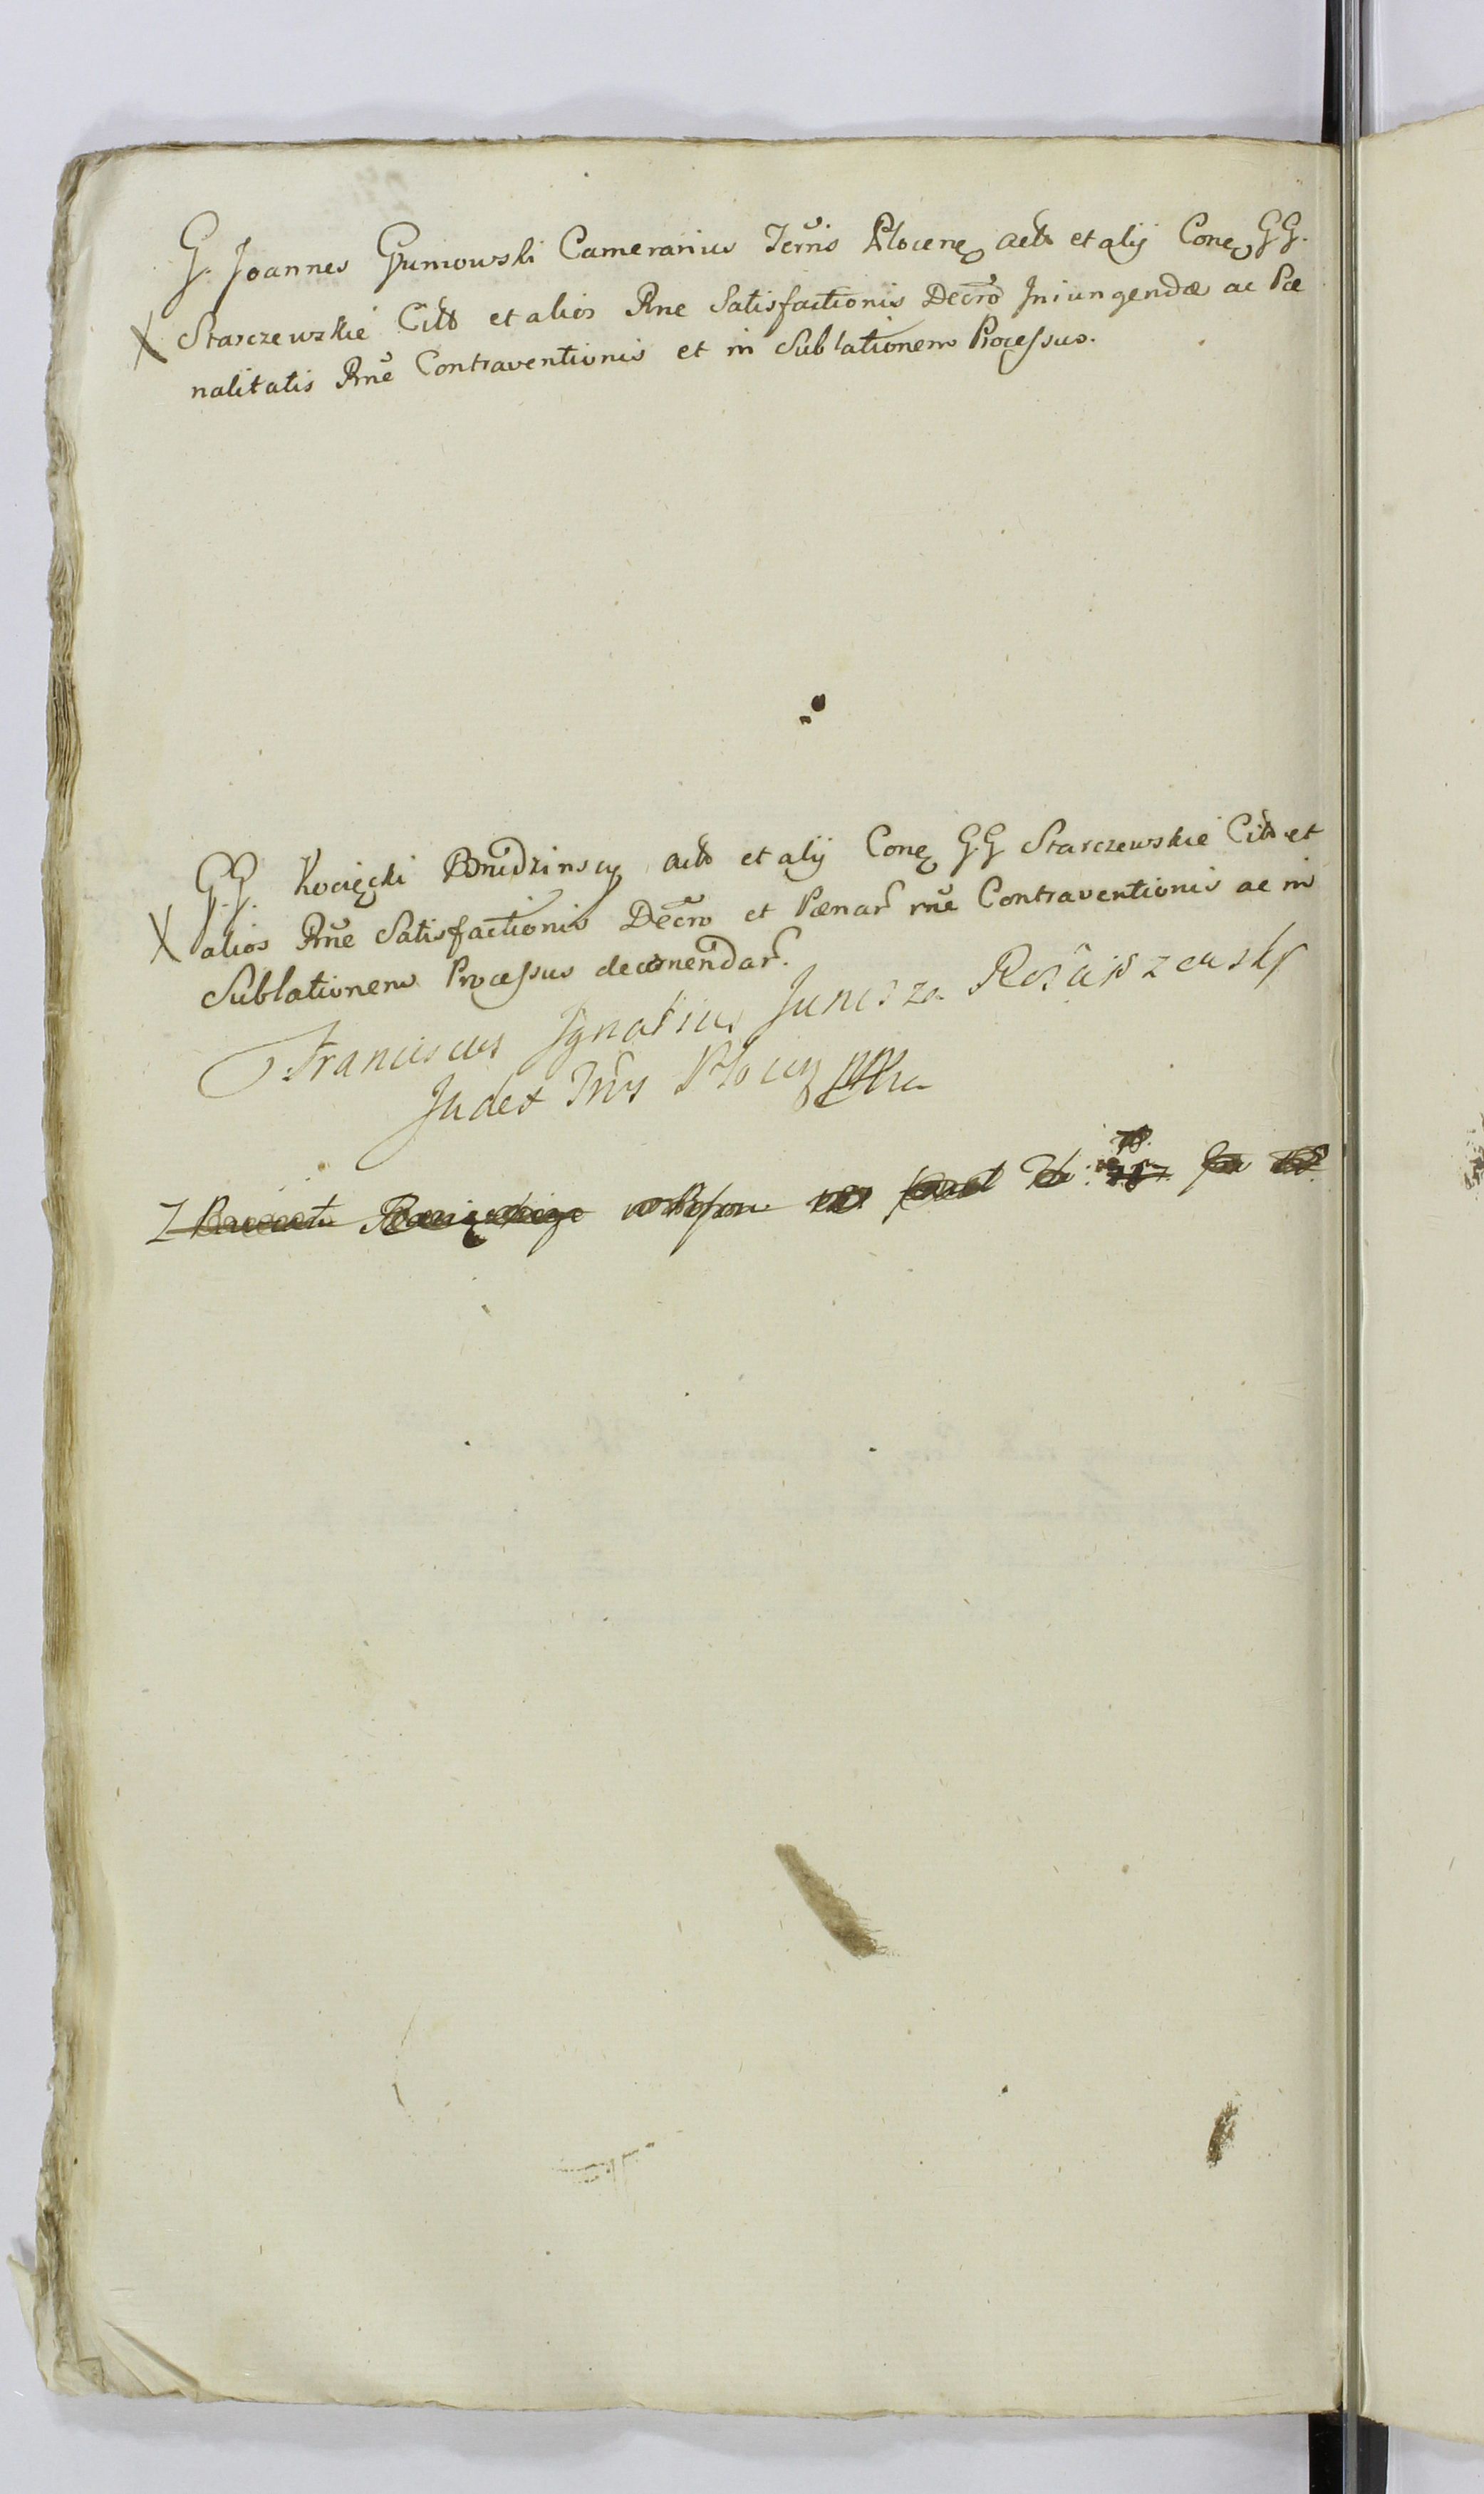 G. Joannes Gumowski Camerarius Terris Plocens actr et alij Conę GG.
X Starczewskie Citt et alios Rne Satisfactionis Decro Iniungendæ ac Pæ
nalitatis Rne Contraventionis et in Sublationem Processus.
G.G. Kocięcki Brudzinscy actr et alij Conę G.G Starczewskie Citt et
X alios Rne Satisfactionis Decro et Pænar rne Contraventionis ac in
Sublationem Processus decernendar.
Franciscus Ignatius Junosza Rosciszewsky
Judex Tris Plocen
Z